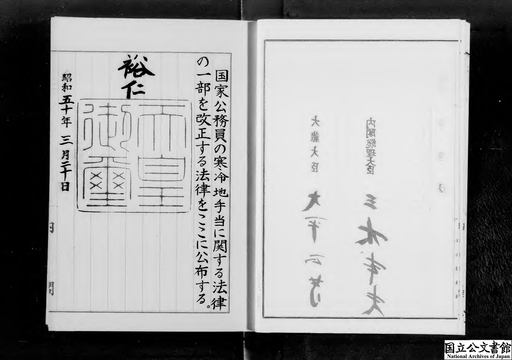 内閣総理大臣
大蔵大臣
国家公務員の寒冷地手当に関する法律
の一部を改正する法律をここに公布する。
裕仁
天皇
御璽
昭和五十年三月二十日
国立公文書館
National Archives of Japan